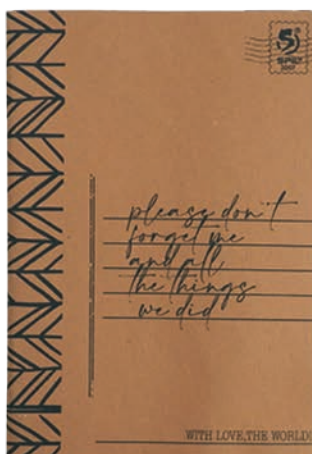 please don't
forget me
and all
the things
we did
WITH LOVE, THE WORLD